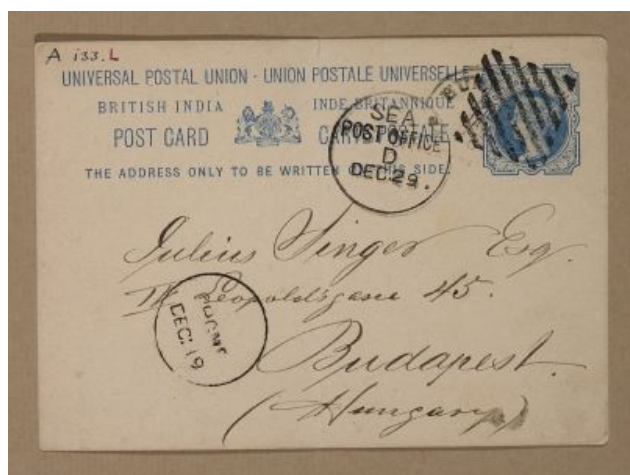 A i33.L
UNIVERSAL POSTAL UNION · UNION POSTALE UNIVERSELLE
BRITISH INDIA
INDE BRITANNIQUE
POST CARD
CARTE POSTALE
THE ADDRESS ONLY TO BE WRITTEN ON THIS SIDE.
SEA
POST OFFICE
D
DEC.29.
Julius Singer Esq.
IV Leopoldsgasse 45.
DEC.19
Budapest.
(Hungary)